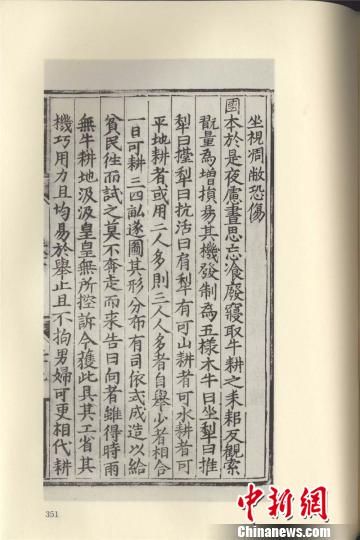 坐視凋敝恐傷
國本於是夜慮晝思忘飡廢寢取牛耕之耒耜反觀索
翫量為增損易其機發制為五樣木牛曰坐犁曰推
犁曰擡犁曰抗活曰肩犁有可山耕者可水耕者可
平地耕者或用二人多則三人人多者自舉少者相合
一日可耕三四畝遂圖其形分布有司依式成造以給
貧民徃而試之莫不奔走而来告曰向者雖得時雨
無牛耕地汲汲皇皇無所控訴今獲此具其工省其
機巧用力且均易於舉止且不拘男婦可更相代耕
351
中新網
www.chinanews.com